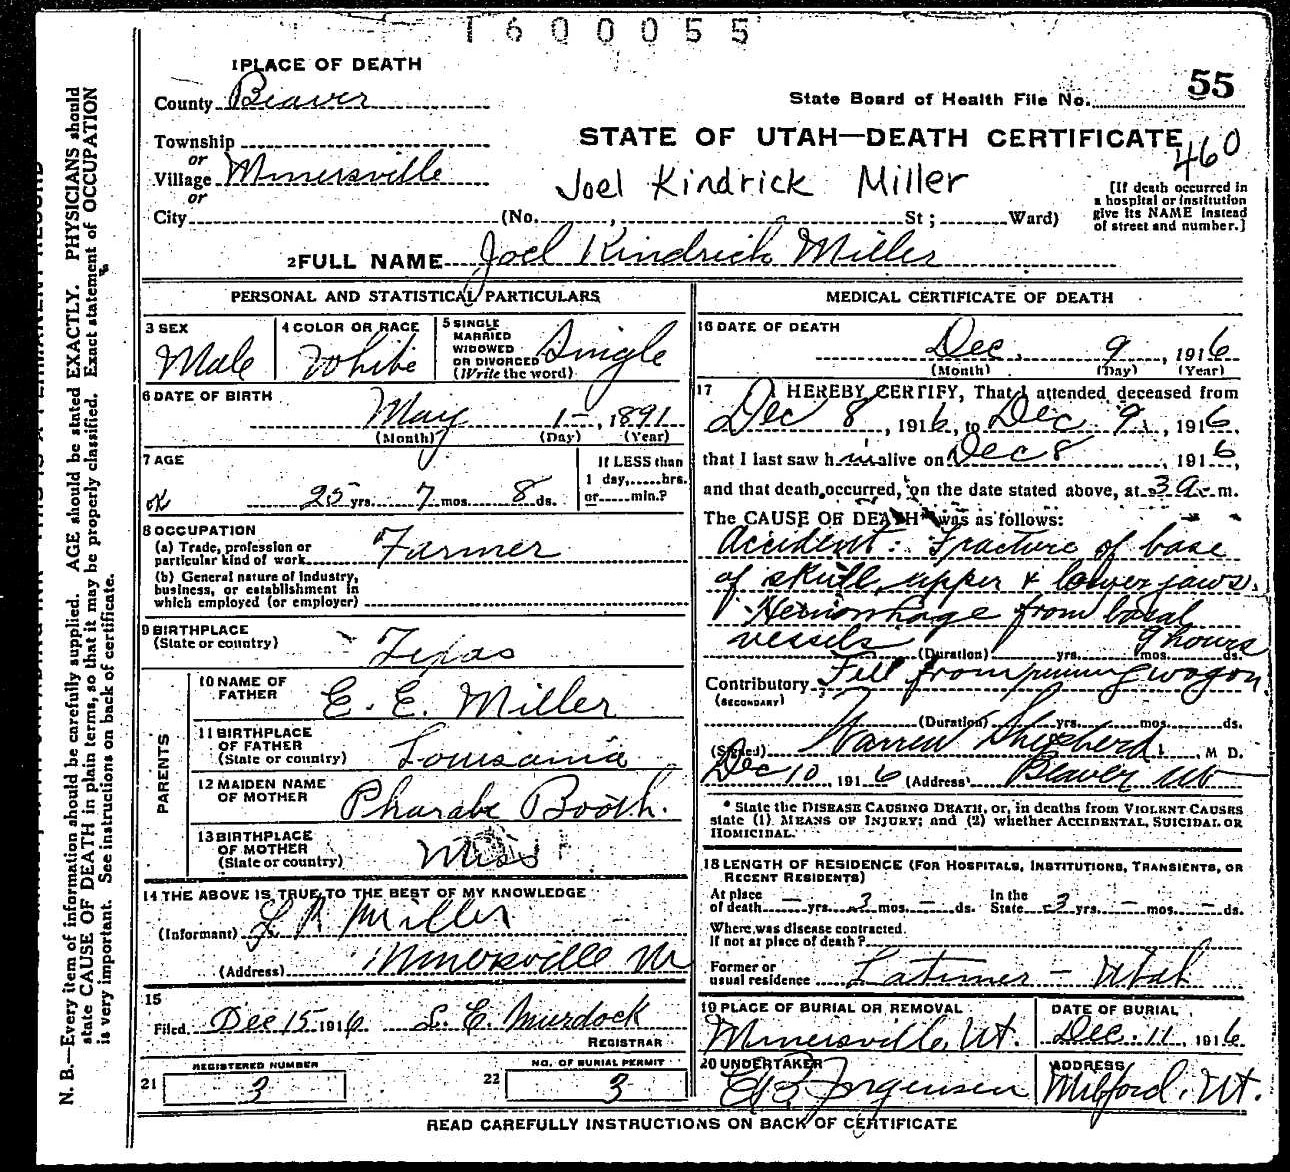 1600055
1 PLACE OF DEATH
55
County Beaver
State Board of Health File No.
Township
STATE OF UTAH—DEATH CERTIFICATE
460
or
Village Minersville
Joel Kindrick Miller
or
[If death occurred in
a hospital or institution
give its NAME instead
of street and number.]
City (No. , St; Ward)
2 FULL NAME Joel Kindrick Miller
PERSONAL AND STATISTICAL PARTICULARS
3 SEX
Male
4 COLOR OR RACE
White
5 SINGLE
MARRIED
WIDOWED
OR DIVORCED
(Write the word)
Single
6 DATE OF BIRTH
May 1-, 1891
(Month) (Day) (Year)
7 AGE
25 yrs. 7 mos. 8 ds.
If LESS than
1 day, hrs.
or min.?
8 OCCUPATION
(a) Trade, profession or
particular kind of work Farmer
(b) General nature of industry,
business, or establishment in
which employed (or employer)
9 BIRTHPLACE
(State or country)
Texas
PARENTS
10 NAME OF
FATHER
E. E. Miller
11 BIRTHPLACE
OF FATHER
(State or country)
Louisania
12 MAIDEN NAME
OF MOTHER
Pharabe Booth.
13 BIRTHPLACE
OF MOTHER
(State or country)
Miss
14 THE ABOVE IS TRUE TO THE BEST OF MY KNOWLEDGE
(Informant) L R Miller
(Address) Minersville
15
Filed Dec 15 1916 L. E. Murdock
REGISTRAR
REGISTERED NUMBER
21 3
NO. OF BURIAL PERMIT
22 3
MEDICAL CERTIFICATE OF DEATH
16 DATE OF DEATH
Dec. 9, 1916
(Month) (Day) (Year)
17 I HEREBY CERTIFY, That I attended deceased from
Dec 8, 1916, to Dec 9, 1916,
that I last saw h im alive on Dec 8, 1916,
and that death occurred, on the date stated above, at 3 a. m.
The CAUSE OF DEATH* was as follows:
Accident: Fracture of base
of skull, upper & lower jaws.
Hemorrhage from basal
vessels 9 hours
(Duration) yrs. mos. ds.
Contributory Fell from wagon.
(SECONDARY)
(Duration) yrs. mos. ds.
(Signed) Warren Shepherd, M D.
Dec 10 1916 (Address) Beaver Ut
* State the DISEASE CAUSING DEATH, or, in deaths from VIOLENT CAUSES
state (1) MEANS OF INJURY; and (2) whether ACCIDENTAL, SUICIDAL OR
HOMICIDAL.
18 LENGTH OF RESIDENCE (FOR HOSPITALS, INSTITUTIONS, TRANSIENTS, OR
RECENT RESIDENTS)
At place
of death — yrs. 3 mos. — ds.
In the
State 3 yrs. — mos. — ds.
Where was disease contracted.
If not at place of death?
Former or
usual residence Latimer - Utah
19 PLACE OF BURIAL OR REMOVAL
Minersville, Ut.
DATE OF BURIAL
Dec. 11, 1916
20 UNDERTAKER
Jorgensen
ADDRESS
Milford, Ut.
READ CAREFULLY INSTRUCTIONS ON BACK OF CERTIFICATE
N. B.—Every item of information should be carefully supplied. AGE should be stated EXACTLY. PHYSICIANS should
state CAUSE OF DEATH in plain terms, so that it may be properly classified. Exact statement of OCCUPATION
is very important. See instructions on back of certificate.